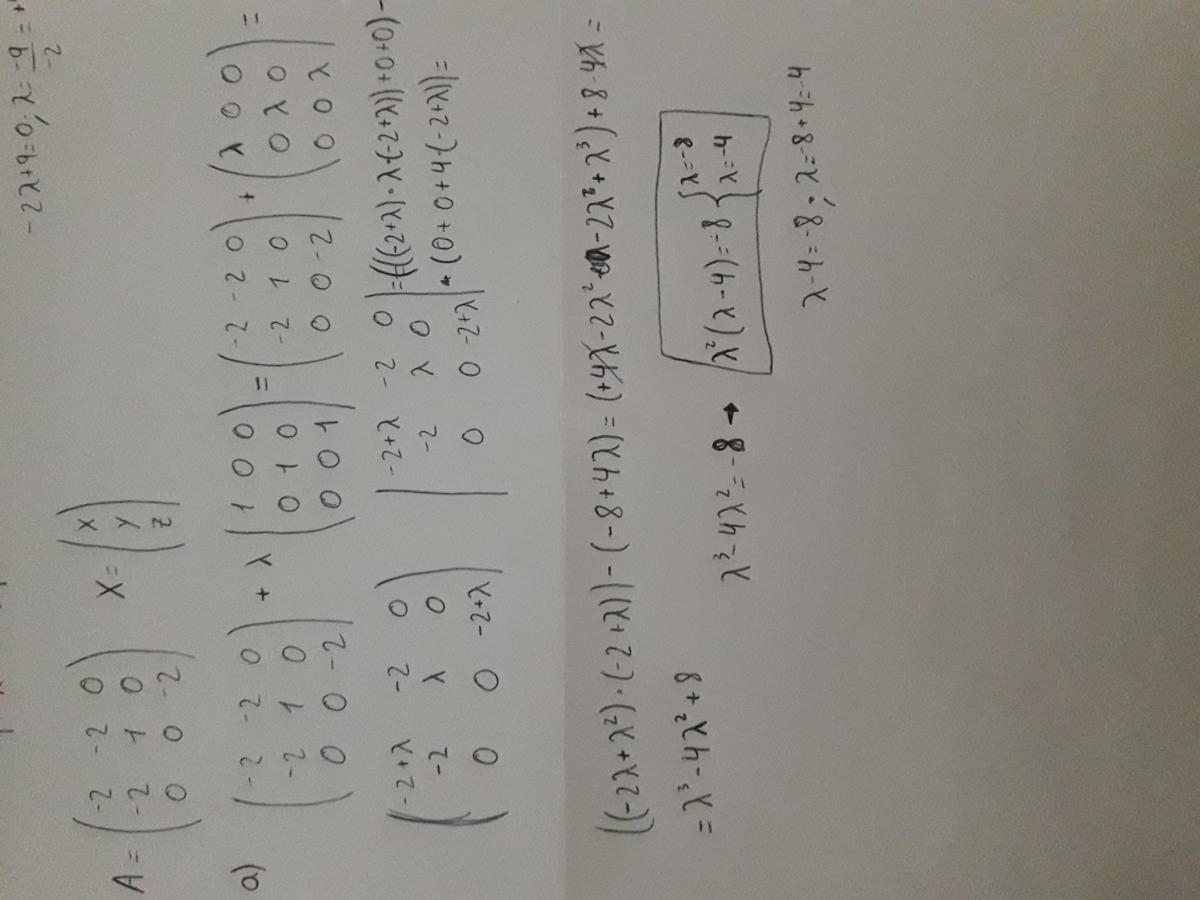 -2λ+4=0; λ= -4/-2 = +
A = (-2 -2 0 / -2 1 0 / 0 0 -2) X = (x / y / z)
a) (-2 -2 0 / -2 1 0 / 0 0 -2) + λ (1 0 0 / 0 1 0 / 0 0 1) = (-2 -2 0 / -2 1 0 / 0 0 -2) + (λ 0 0 / 0 λ 0 / 0 0 λ) =
(-2+λ -2 0 / -2 λ 0 / 0 0 -2+λ) |-2+λ -2 0 / -2 λ 0 / 0 0 -2+λ| = (((-2+λ)·λ·(-2+λ))+0+0)-
(0+0+4·(-2+λ))=
((-2λ+λ²)·(-2+λ))-(-8+4λ) = (+4λ-2λ² -2λ²+λ³)+8-4λ=
= λ³-4λ²+8
λ³-4λ²=-8 → λ²(λ-4)=-8 { λ=-8 / λ=-4
λ-4=-8; λ=-8+4=-4